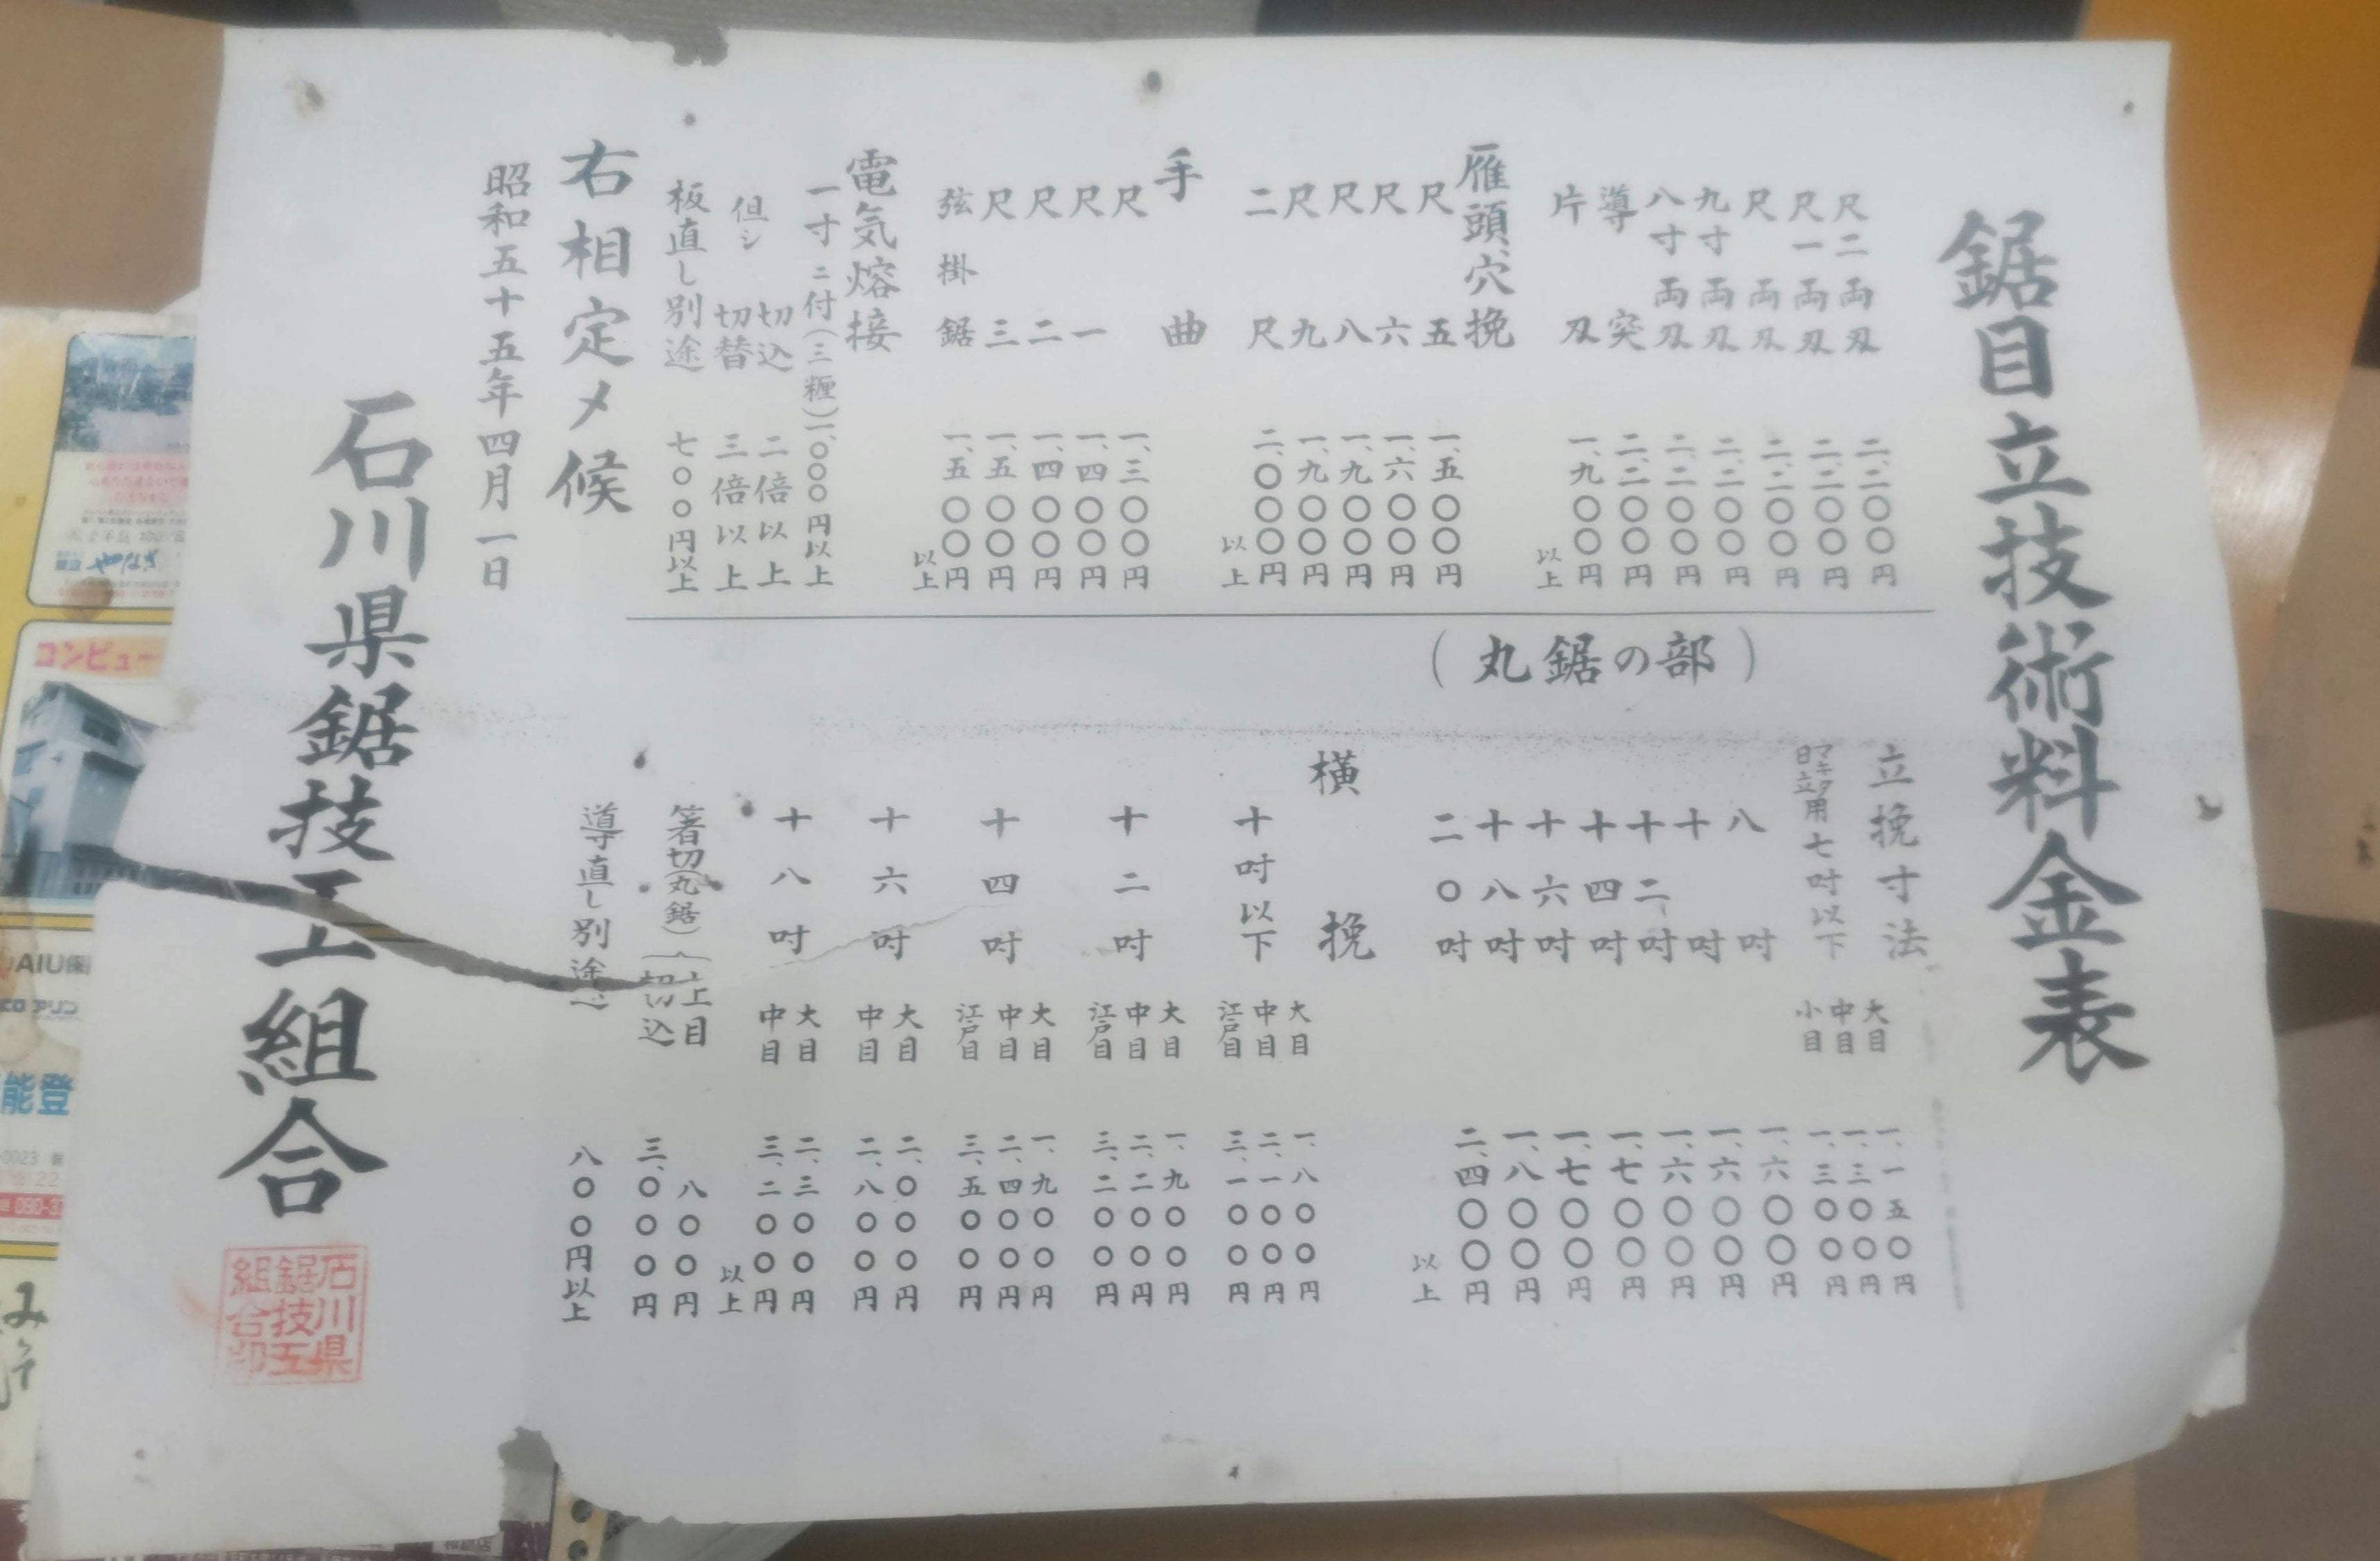 鋸目立技術料金表
尺二両刄 二、二〇〇円
尺一両刄 二、二〇〇円
尺両刄 二、二〇〇円
九寸両刄 二、二〇〇円
八寸両刄 二、二〇〇円
導突 二、二〇〇円
片刄 一、九〇〇円以上
雁頭、穴挽
尺五 一、五〇〇円
尺六 一、六〇〇円
尺八 一、九〇〇円
尺九 一、九〇〇円
二尺 二、〇〇〇円以上
手曲
尺 一、三〇〇円
尺一 一、四〇〇円
尺二 一、四〇〇円
尺三 一、五〇〇円
弦掛鋸 一、五〇〇円以上
電気熔接
一寸ニ付(三糎)一、〇〇〇円以上
但シ 切込 二倍以上
切替 三倍以上
板直し別途 七〇〇円以上
(丸鋸の部)
立挽寸法
マキタ日立用七吋以下
大目 一、一五〇円
中目 一、三〇〇円
小目 一、三〇〇円
八吋 一、六〇〇円
十吋 一、六〇〇円
十二吋 一、六〇〇円
十四吋 一、七〇〇円
十六吋 一、七〇〇円
十八吋 一、八〇〇円
二〇吋 二、四〇〇円以上
横挽
十吋以下 大目 一、八〇〇円
中目 二、一〇〇円
江戸目 三、一〇〇円
十二吋 大目 一、九〇〇円
中目 二、二〇〇円
江戸目 三、二〇〇円
十四吋 大目 一、九〇〇円
中目 二、四〇〇円
江戸目 三、五〇〇円
十六吋 大目 二、〇〇〇円
中目 二、八〇〇円
十八吋 大目 二、三〇〇円
中目 三、二〇〇円以上
箸切(丸鋸)
上目 八〇〇円
切込 三、〇〇〇円
導直し別途 八〇〇円以上
右相定メ候
昭和五十五年四月一日
石川県鋸技工組合
石川県
鋸技工
組合印
コンピュー
AIU保
能登
0023
090-3